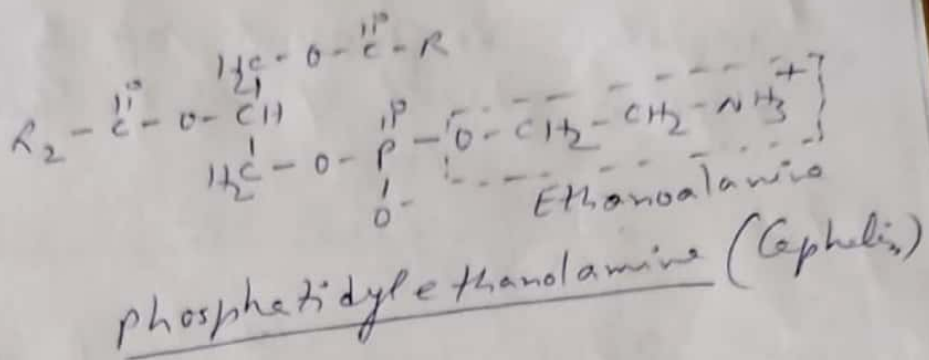 H2C - O - C - R
R2 - C - O - CH O
H2C - O - P - O - CH2 - CH2 - NH3+
O-
Ethanoalamine
phosphatidylethanolamine (Cephelin)